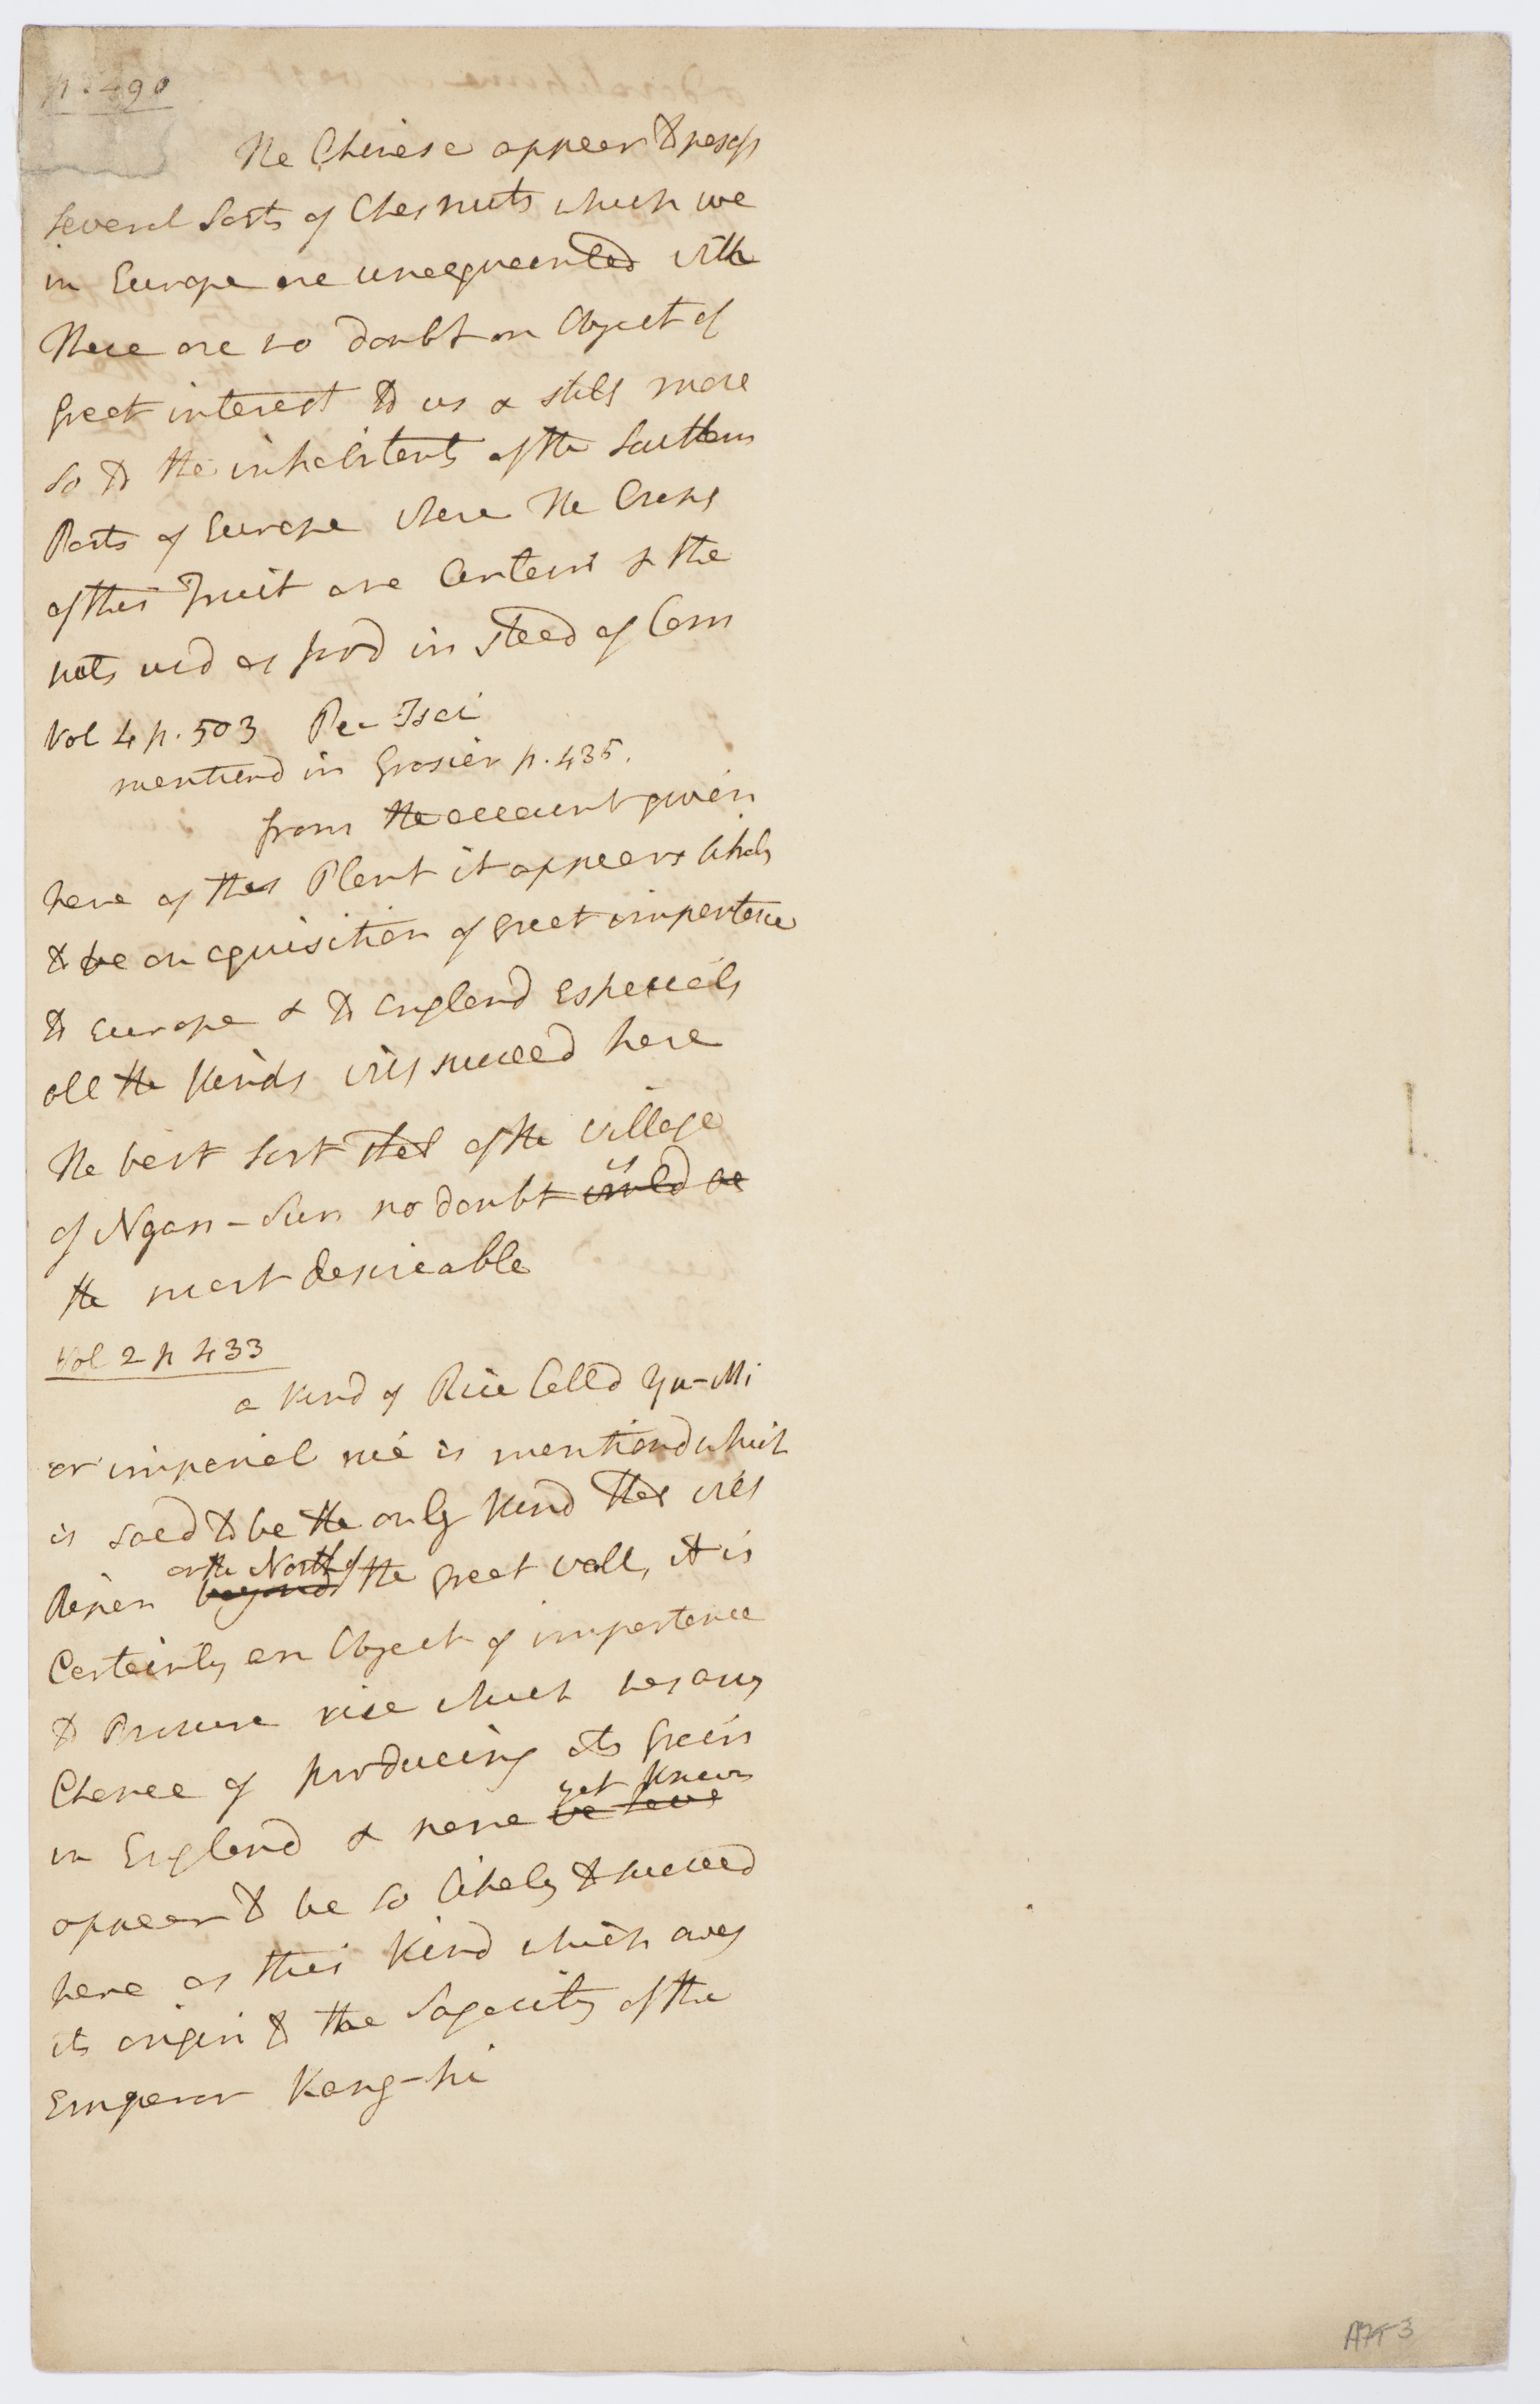 p. 490
The Chinese appear to possess
several Sorts of Chesnuts which we
in Europe are unacquainted with
These are no doubt an Object of
great interest to us & still more
so to the inhabitants of the Southern
Parts of Europe where the Crops
of this Fruit are Certain & the
nuts usd as food in stead of Corn
Vol 4 p. 503 Pe-Tsai
mentiond in Grosier p. 435.
from the account given
here of this Plant it appears likely
to be an aquisition of great importance
to Europe & to England Especialy
all the kinds will succeed here
The best sort that of the village
of Ngan-Sun no doubt is would be
the most desireable
Vol 2 p 433
a kind of Rice Calld Yu-Mi
or imperial rice is mentiond which
is said to be the only kind that will
Ripen beyond on the North of the great wall, it is
Certainly an Object of importance
to Procure rice which has any
Chance of producing its grain
in England & none we have yet known
appear to be so likely to succeed
here as this kind which owes
its origin to the Sagacity of the
Emperor Kang-hi